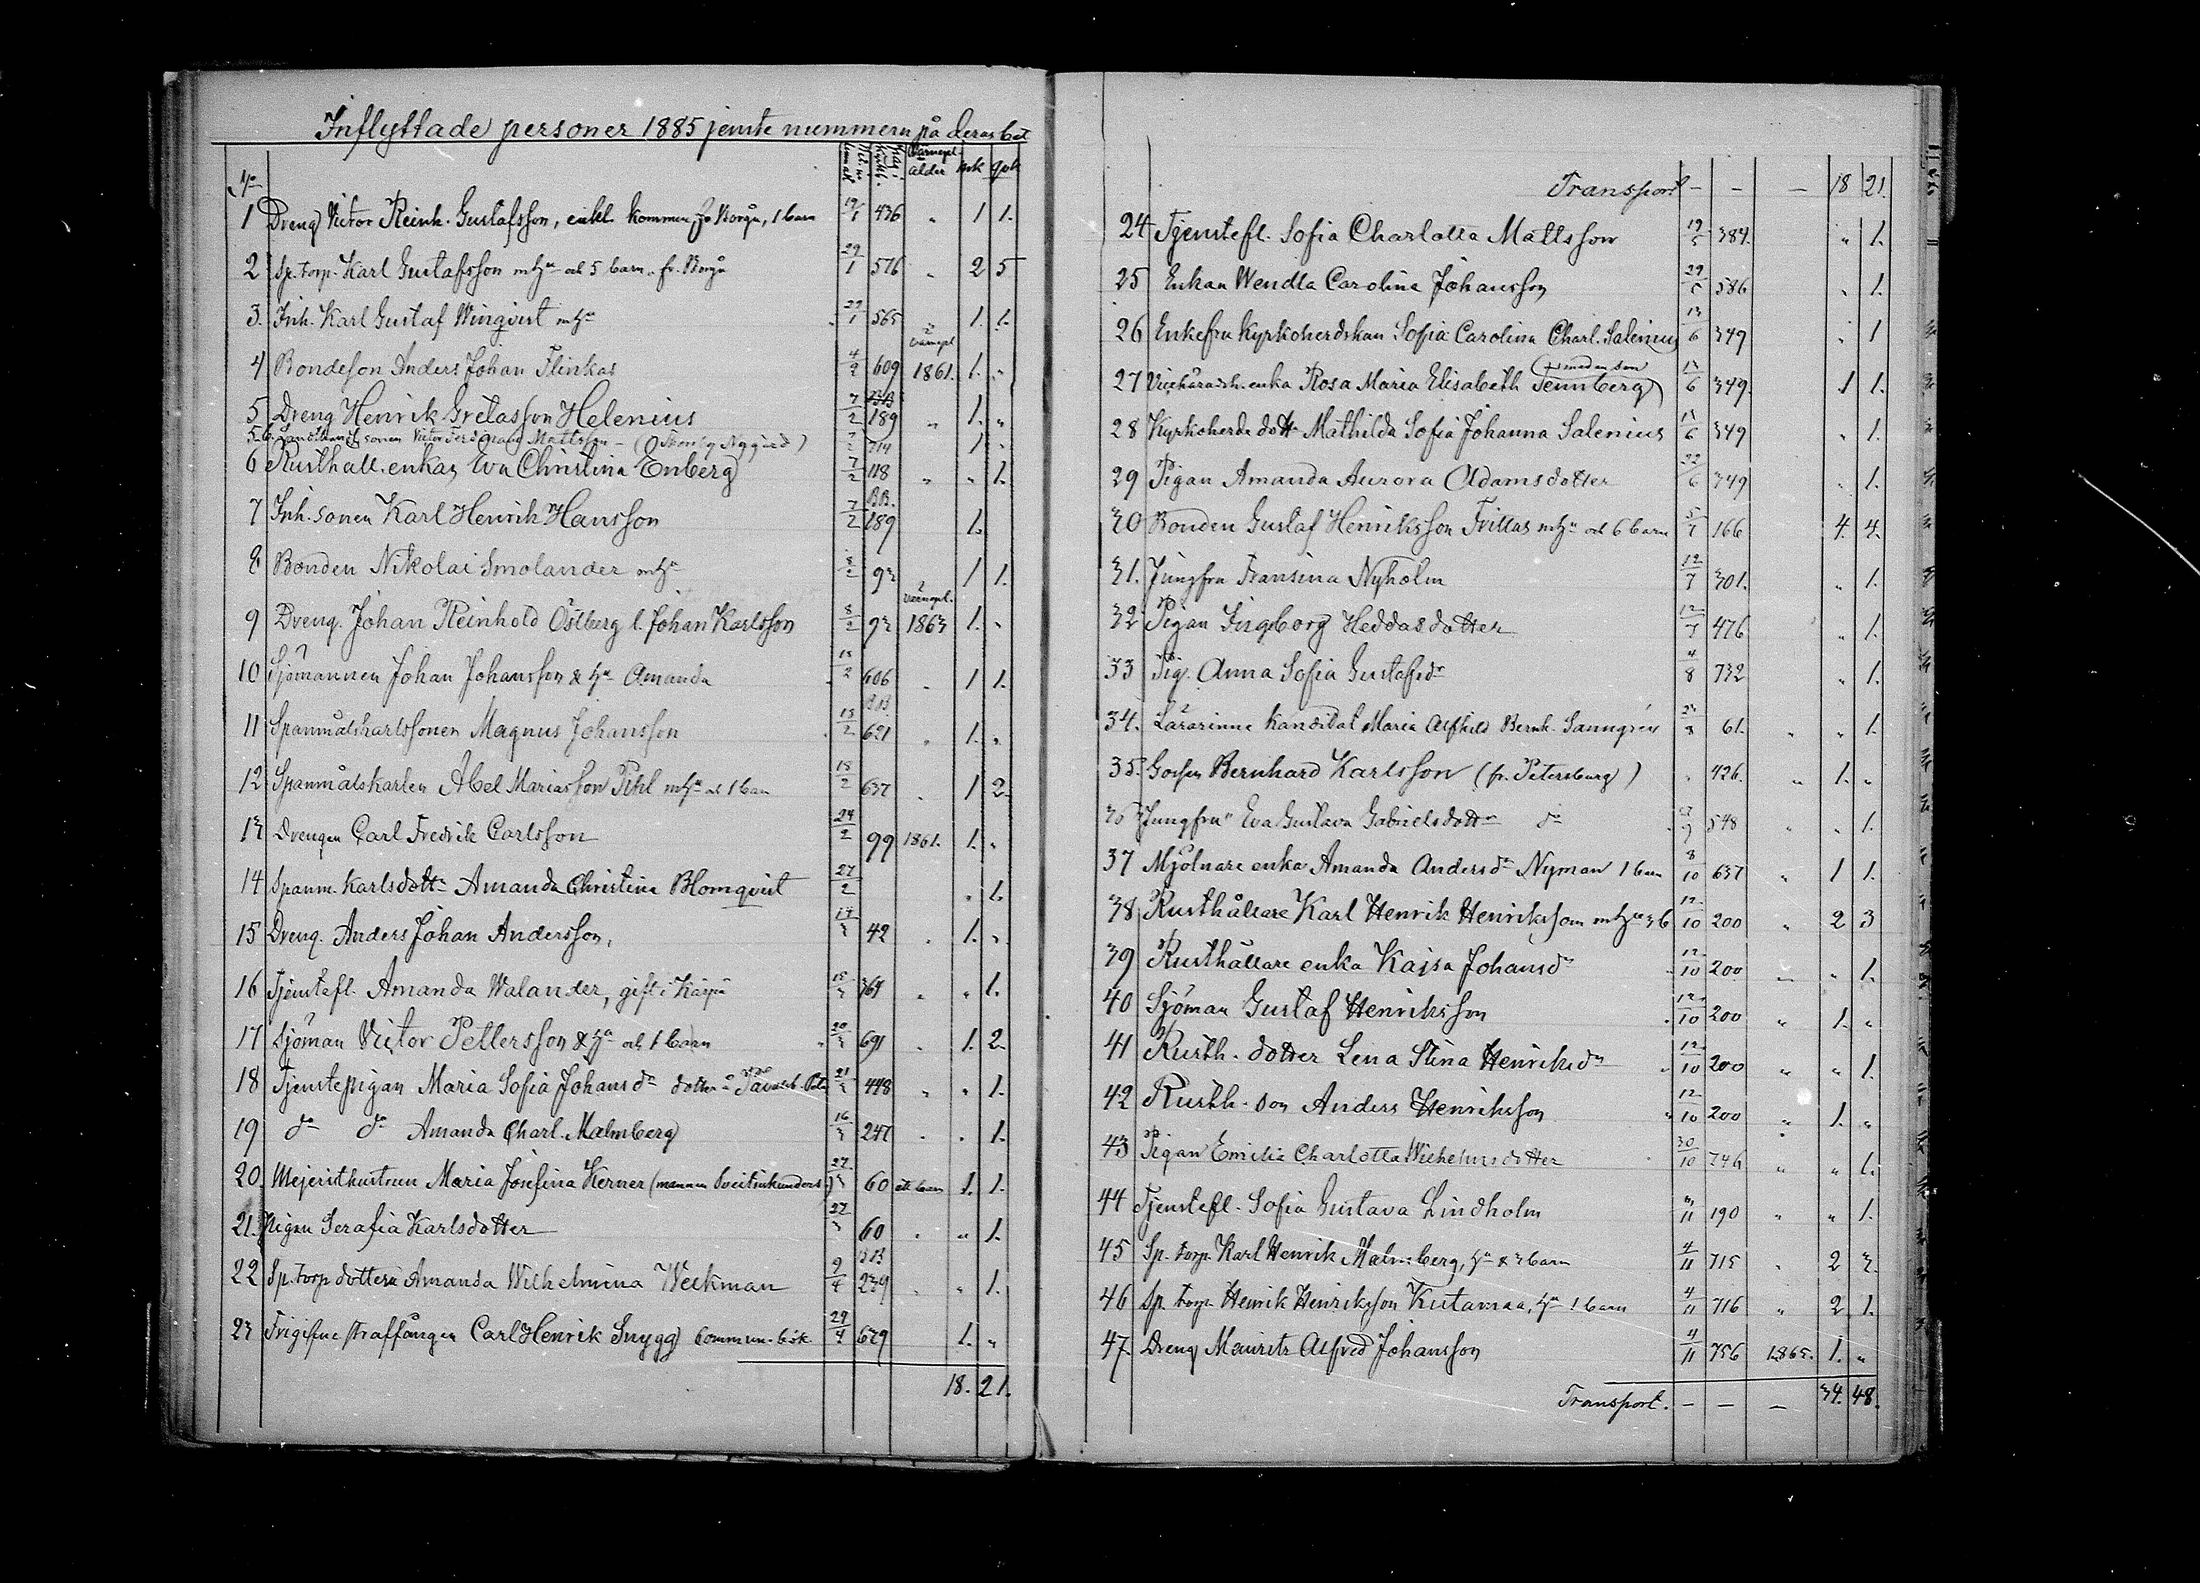 Inflyttade personer 1885 jemte nummern på deras bet
No värnepl. ålder mk qvk
1 Dreng Victor Reinh. Gustafsson, enkl. kommen fr Borgå, 1 barn 19/1 436 " 1 1.
2 Sp. torp. Karl Gustafsson m hu och 5 barn. fr. Borgå 29/1 516 " 2 5
3. Inh. Karl Gustaf Winqvist m hu 29/1 565 1. 1.
4 Bondeson Anders Johan Flinkas 4/2 609 värnepl 1861. 1. "
5 Dreng Henrik Gretasson Helenius 7/2 189 " 1. "
5 b. sonen Victor Ferdinand Mattsson 1 "
6 Rusthåll. enkan Eva Christina Enberg 7/2 118 " " 1.
7 Inh. sonen Karl Henrik Hansson 7/2 B.B. 189 1.
8 Bonden Nikolai Smolander m hu 8/2 93 1 1.
9 Dreng. Johan Reinhold Östberg l. Johan Karlsson 8/2 93 värnepl. 1863 1. "
10 Sjömannen Johan Johansson & hu Amanda 13/2 606 " 1 1.
11 Spanmålskarlssonen Magnus Johansson 13/2 BB 621 " 1. "
12 Spanmålskarlen Abel Mariasson Pihl m hu o 1 barn 13/2 637 . 1 2.
13 Drengen Carl Fredrik Carlsson 24/2 99 1861. 1. "
14 Spanm. karlsdottr Amanda Christina Blomqvist 27/2 " 1.
15 Dreng. Anders Johan Andersson, 42 . 1. "
16 Tjenstefl. Amanda Walander, gift i Kärpä 364 " " 1.
17 Sjöman Victor Pettersson & hu och 1 barn 20/3 691 . 1. 2.
18 Tjenstepigan Maria Sofia Johansdr 21/3 448 " " 1.
19 do do Amanda Charl. Malmberg 16/3 247 . . 1.
20 Mejeristhustrun Maria Josefina Kerner (mannen 27/3 60 ett barn 1. 1.
21. Pigan Serafia Karlsdotter 27/3 60 . " 1.
22 Sp. torp dottern Amanda Wilhelmina Weckman 9/4 BB 239 . " 1.
23 Frigifne straffången Carl Henrik Snygg Commun. bok. 29/4 629 1. "
18. 21.
Transport - - - 18 21.
24 Tjenstefl. Sofia Charlotta Mattsson 19/5 384. " 1.
25 Enkan Wendla Carolina Johansson 29/5 586 " 1.
26 Enkefru Kyrkoherdskan Sofia Carolina Charl. Salenius 13/6 349 " 1
27 Vicehäradsh. enka Rosa Maria Elisabeth Tennberg (med en son 13/6 349. 1 1.
28 Kyrkoherde dottr Mathilda Sofia Johanna Salenius 13/6 349 " 1.
29 Pigan Amanda Aurora Adamsdotter 22/6 349 " 1.
30 Bonden Gustaf Henriksson Frittas m hu och 6 barn 5/7 166 4. 4.
31. Jungfru Fransina Nyholm 12/7 301. " 1.
32 Pigan Ingeborg Heddasdotter 12/7 476 " 1.
33 Pig. Anna Sofia Gustafsdr 4/8 732 " 1.
34. Lärarinne kandidat Maria Alfhild Bernh. Sanngren 61. " " 1.
35. Gossen Bernhard Karlsson (fr. Petersburg) " 426. " 1. "
36 "Jungfru" Eva Gustava Gabrielsdottr do 548 " " 1.
37 Mjölnare enka Amanda Andersdr Nyman 1 barn 8/10 637 " 1 1.
38 Rusthållare Karl Henrik Henriksson m hu 3 b 12/10 200 " 2 3
39 Rusthållare enka Kajsa Johansdr 12/10 200 " " 1.
40 Sjöman Gustaf Henriksson 12/10 200 " 1. "
41 Rusth. dotter Lena Stina Henriksdr 12/10 200 " " 1.
42 Rusth. son Anders Henriksson 12/10 200 " 1. "
43 Pigan Emilia Charlotta Wilhelmsdotter 30/10 746 " " 1.
44 Tjenstefl. Sofia Gustava Lindholm 190 " " 1.
45 Sp. torp. Karl Henrik Malmberg, hu & 3 barn 4/11 715 " 2 3.
46 Sp. torp. Henrik Henriksson Kutamaa, hu 1 barn 4/11 716 " 2 1.
47. Dreng Mauritz Alfred Johansson 4/11 756 1865. 1. "
Transport. - - - 34. 48.